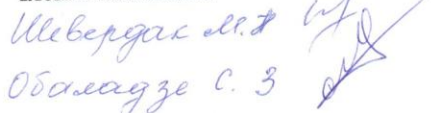 Шевердак М.П
Обаладзе С. З